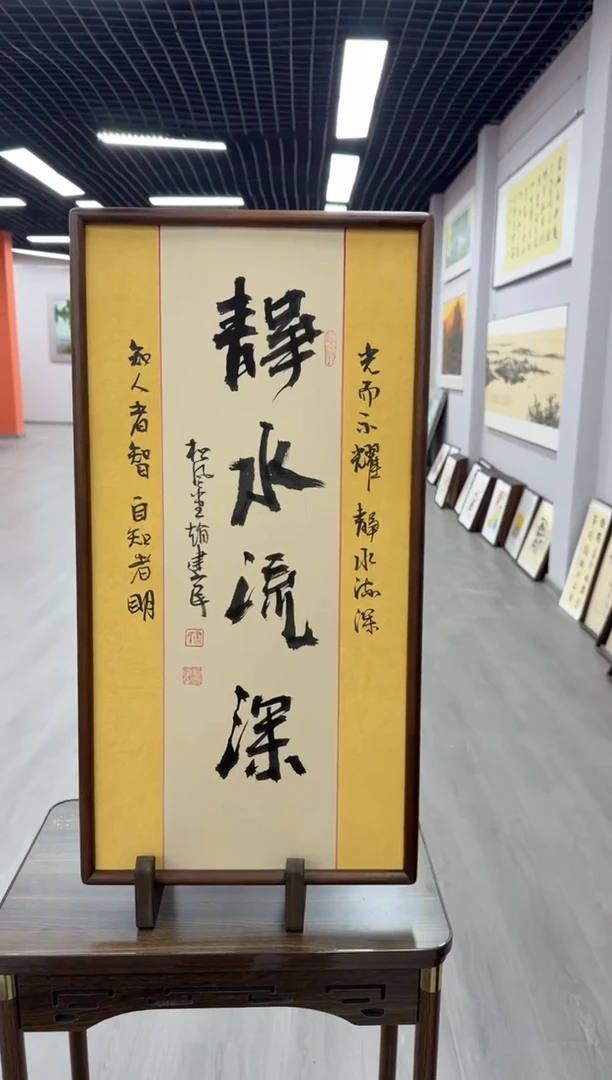 光而不耀 静水流深
静水流深
松风堂 建民
知人者智 自知者明